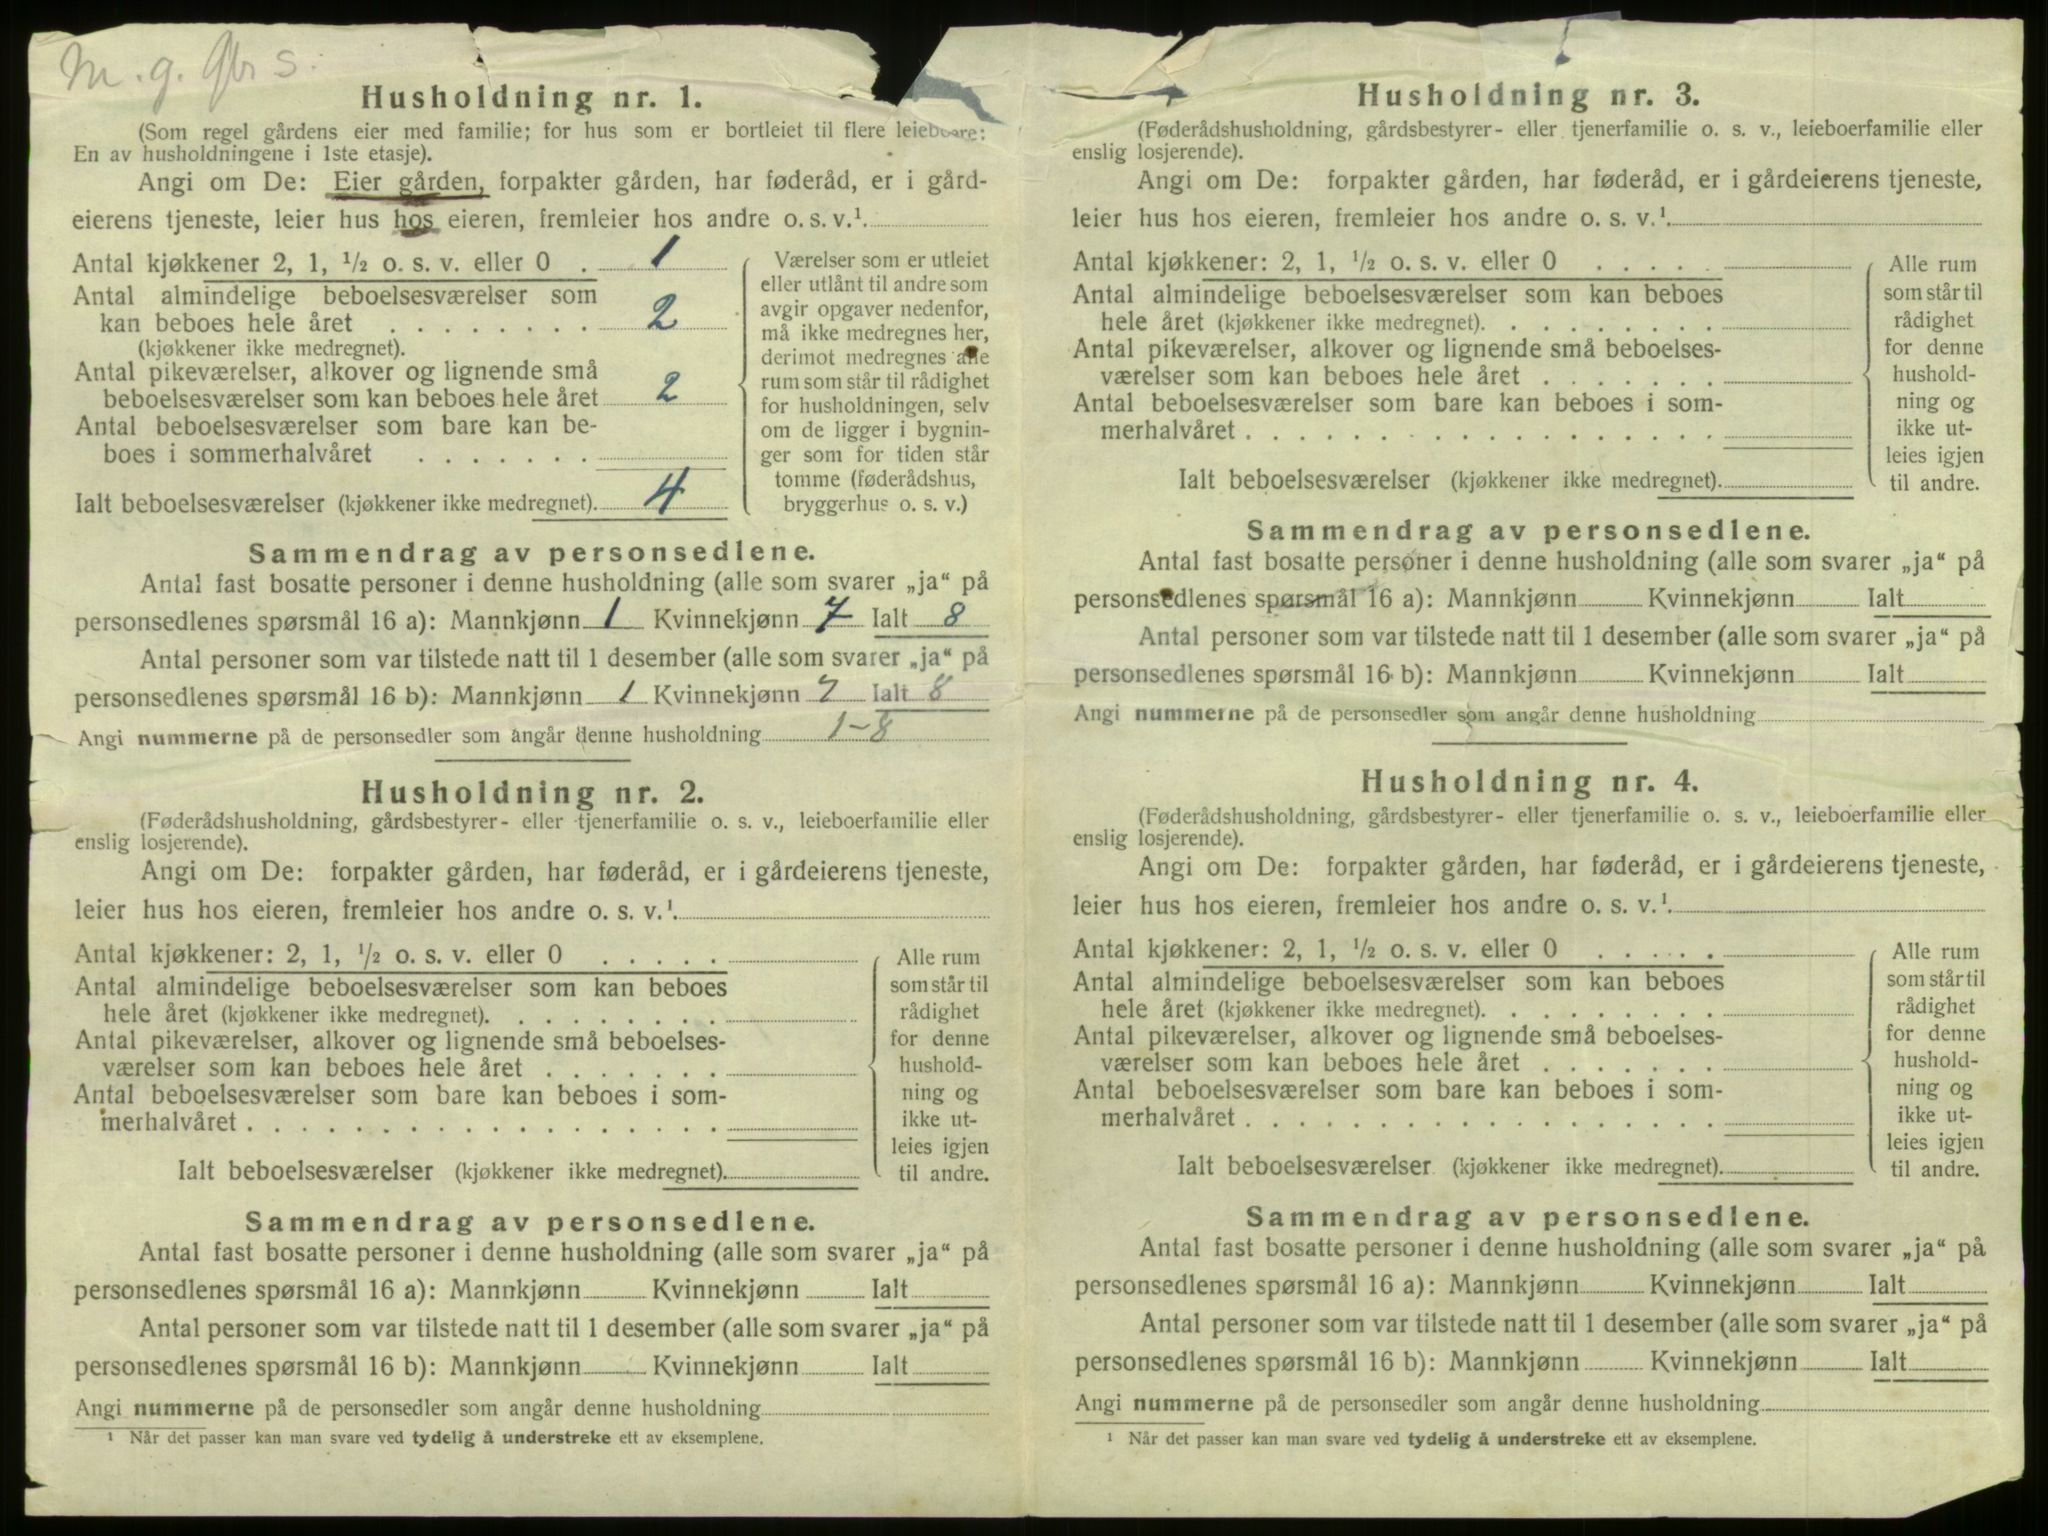 M. g.
Husholdning nr. 1.
(Som regel gårdens eier med familie; for hus som er bortleiet til flere leieboere:
En av husholdningene i 1ste etasje).
Angi om De: Eier gården, forpakter gården, har føderåd, er i gård-
eierens tjeneste, leier hus hos eieren, fremleier hos andre o. s. v.¹.
Antal kjøkkener 2, 1, ½ o. s. v. eller 0 . 1
Antal almindelige beboelsesværelser som
kan beboes hele året . . . . . . . . 2
(kjøkkener ikke medregnet).
Antal pikeværelser, alkover og lignende små
beboelsesværelser som kan beboes hele året 2
Antal beboelsesværelser som bare kan be-
boes i sommerhalvåret . . . . . . .
Ialt beboelsesværelser (kjøkkener ikke medregnet). 4
Værelser som er utleiet
eller utlånt til andre som
avgir opgaver nedenfor,
må ikke medregnes her,
derimot medregnes alle
rum som står til rådighet
for husholdningen, selv
om de ligger i bygnin-
ger som for tiden står
tomme (føderådshus,
bryggerhus o. s. v.)
Sammendrag av personsedlene.
Antal fast bosatte personer i denne husholdning (alle som svarer „ja“ på
personsedlenes spørsmål 16 a): Mannkjønn 1 Kvinnekjønn 7 Ialt 8
Antal personer som var tilstede natt til 1 desember (alle som svarer „ja“ på
personsedlenes spørsmål 16 b): Mannkjønn 1 Kvinnekjønn 7 Ialt 8
Angi nummerne på de personsedler som angår denne husholdning 1-8
Husholdning nr. 2.
(Føderådshusholdning, gårdsbestyrer- eller tjenerfamilie o. s. v., leieboerfamilie eller
enslig losjerende).
Angi om De: forpakter gården, har føderåd, er i gårdeierens tjeneste,
leier hus hos eieren, fremleier hos andre o. s. v.¹.
Antal kjøkkener: 2, 1, ½ o. s. v. eller 0 . . . . .
Antal almindelige beboelsesværelser som kan beboes
hele året (kjøkkener ikke medregnet). . . . . . . . .
Antal pikeværelser, alkover og lignende små beboelses-
værelser som kan beboes hele året . . . . . . .
Antal beboelsesværelser som bare kan beboes i som-
merhalvåret . . . . . . . . . . . . . . . . . .
Ialt beboelsesværelser (kjøkkener ikke medregnet).
Alle rum
som står til
rådighet
for denne
hushold-
ning og
ikke ut-
leies igjen
til andre.
Sammendrag av personsedlene.
Antal fast bosatte personer i denne husholdning (alle som svarer „ja“ på
personsedlenes spørsmål 16 a): Mannkjønn Kvinnekjønn Ialt
Antal personer som var tilstede natt til 1 desember (alle som svarer „ja“ på
personsedlenes spørsmål 16 b): Mannkjønn Kvinnekjønn Ialt
Angi nummerne på de personsedler som angår denne husholdning
¹ Når det passer kan man svare ved tydelig å understreke ett av eksemplene.
Husholdning nr. 3.
(Føderådshusholdning, gårdsbestyrer- eller tjenerfamilie o. s. v., leieboerfamilie eller
enslig losjerende).
Angi om De: forpakter gården, har føderåd, er i gårdeierens tjeneste,
leier hus hos eieren, fremleier hos andre o. s. v.¹.
Antal kjøkkener: 2, 1, ½ o. s. v. eller 0 . . . . .
Antal almindelige beboelsesværelser som kan beboes
hele året (kjøkkener ikke medregnet). . . . . . . . .
Antal pikeværelser, alkover og lignende små beboelses-
værelser som kan beboes hele året . . . . . . .
Antal beboelsesværelser som bare kan beboes i som-
merhalvåret . . . . . . . . . . . . . . . . . .
Ialt beboelsesværelser (kjøkkener ikke medregnet).
Alle rum
som står til
rådighet
for denne
hushold-
ning og
ikke ut-
leies igjen
til andre.
Sammendrag av personsedlene.
Antal fast bosatte personer i denne husholdning (alle som svarer „ja“ på
personsedlenes spørsmål 16 a): Mannkjønn Kvinnekjønn Ialt
Antal personer som var tilstede natt til 1 desember (alle som svarer „ja“ på
personsedlenes spørsmål 16 b): Mannkjønn Kvinnekjønn Ialt
Angi nummerne på de personsedler som angår denne husholdning
Husholdning nr. 4.
(Føderådshusholdning, gårdsbestyrer- eller tjenerfamilie o. s. v., leieboerfamilie eller
enslig losjerende).
Angi om De: forpakter gården, har føderåd, er i gårdeierens tjeneste,
leier hus hos eieren, fremleier hos andre o. s. v.¹.
Antal kjøkkener: 2, 1, ½ o. s. v. eller 0 . . . . .
Antal almindelige beboelsesværelser som kan beboes
hele året (kjøkkener ikke medregnet). . . . . . . . .
Antal pikeværelser, alkover og lignende små beboelses-
værelser som kan beboes hele året . . . . . . .
Antal beboelsesværelser som bare kan beboes i som-
merhalvåret . . . . . . . . . . . . . . . . . .
Ialt beboelsesværelser (kjøkkener ikke medregnet).
Alle rum
som står til
rådighet
for denne
hushold-
ning og
ikke ut-
leies igjen
til andre.
Sammendrag av personsedlene.
Antal fast bosatte personer i denne husholdning (alle som svarer „ja“ på
personsedlenes spørsmål 16 a): Mannkjønn Kvinnekjønn Ialt
Antal personer som var tilstede natt til 1 desember (alle som svarer „ja“ på
personsedlenes spørsmål 16 b): Mannkjønn Kvinnekjønn Ialt
Angi nummerne på de personsedler som angår denne husholdning
¹ Når det passer kan man svare ved tydelig å understreke ett av eksemplene.